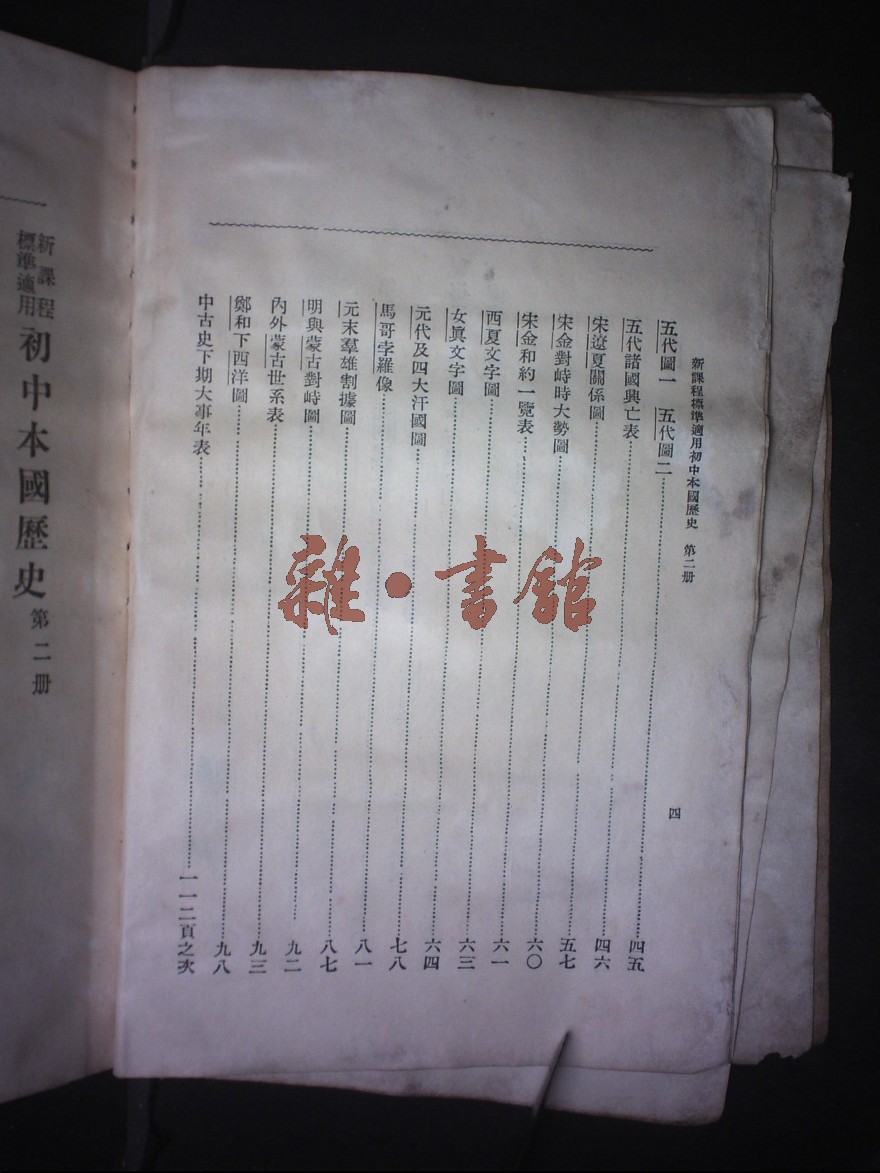 新課程標準適用初中本國歷史 第二册
四
五代圖一 五代圖二……四五
五代諸國興亡表……四六
宋遼夏關係圖……五七
宋金對峙時大勢圖……六〇
宋金和約一覽表……六一
西夏文字圖……六三
女眞文字圖……六四
元代及四大汗國圖……七八
馬哥孛羅像……八一
元末羣雄割據圖……八七
明與蒙古對峙圖……九二
內外蒙古世系表……九三
鄭和下西洋圖……九八
中古史下期大事年表……一一二頁之次
雜·書館
新課程
標準適用
初中本國歷史 第二册